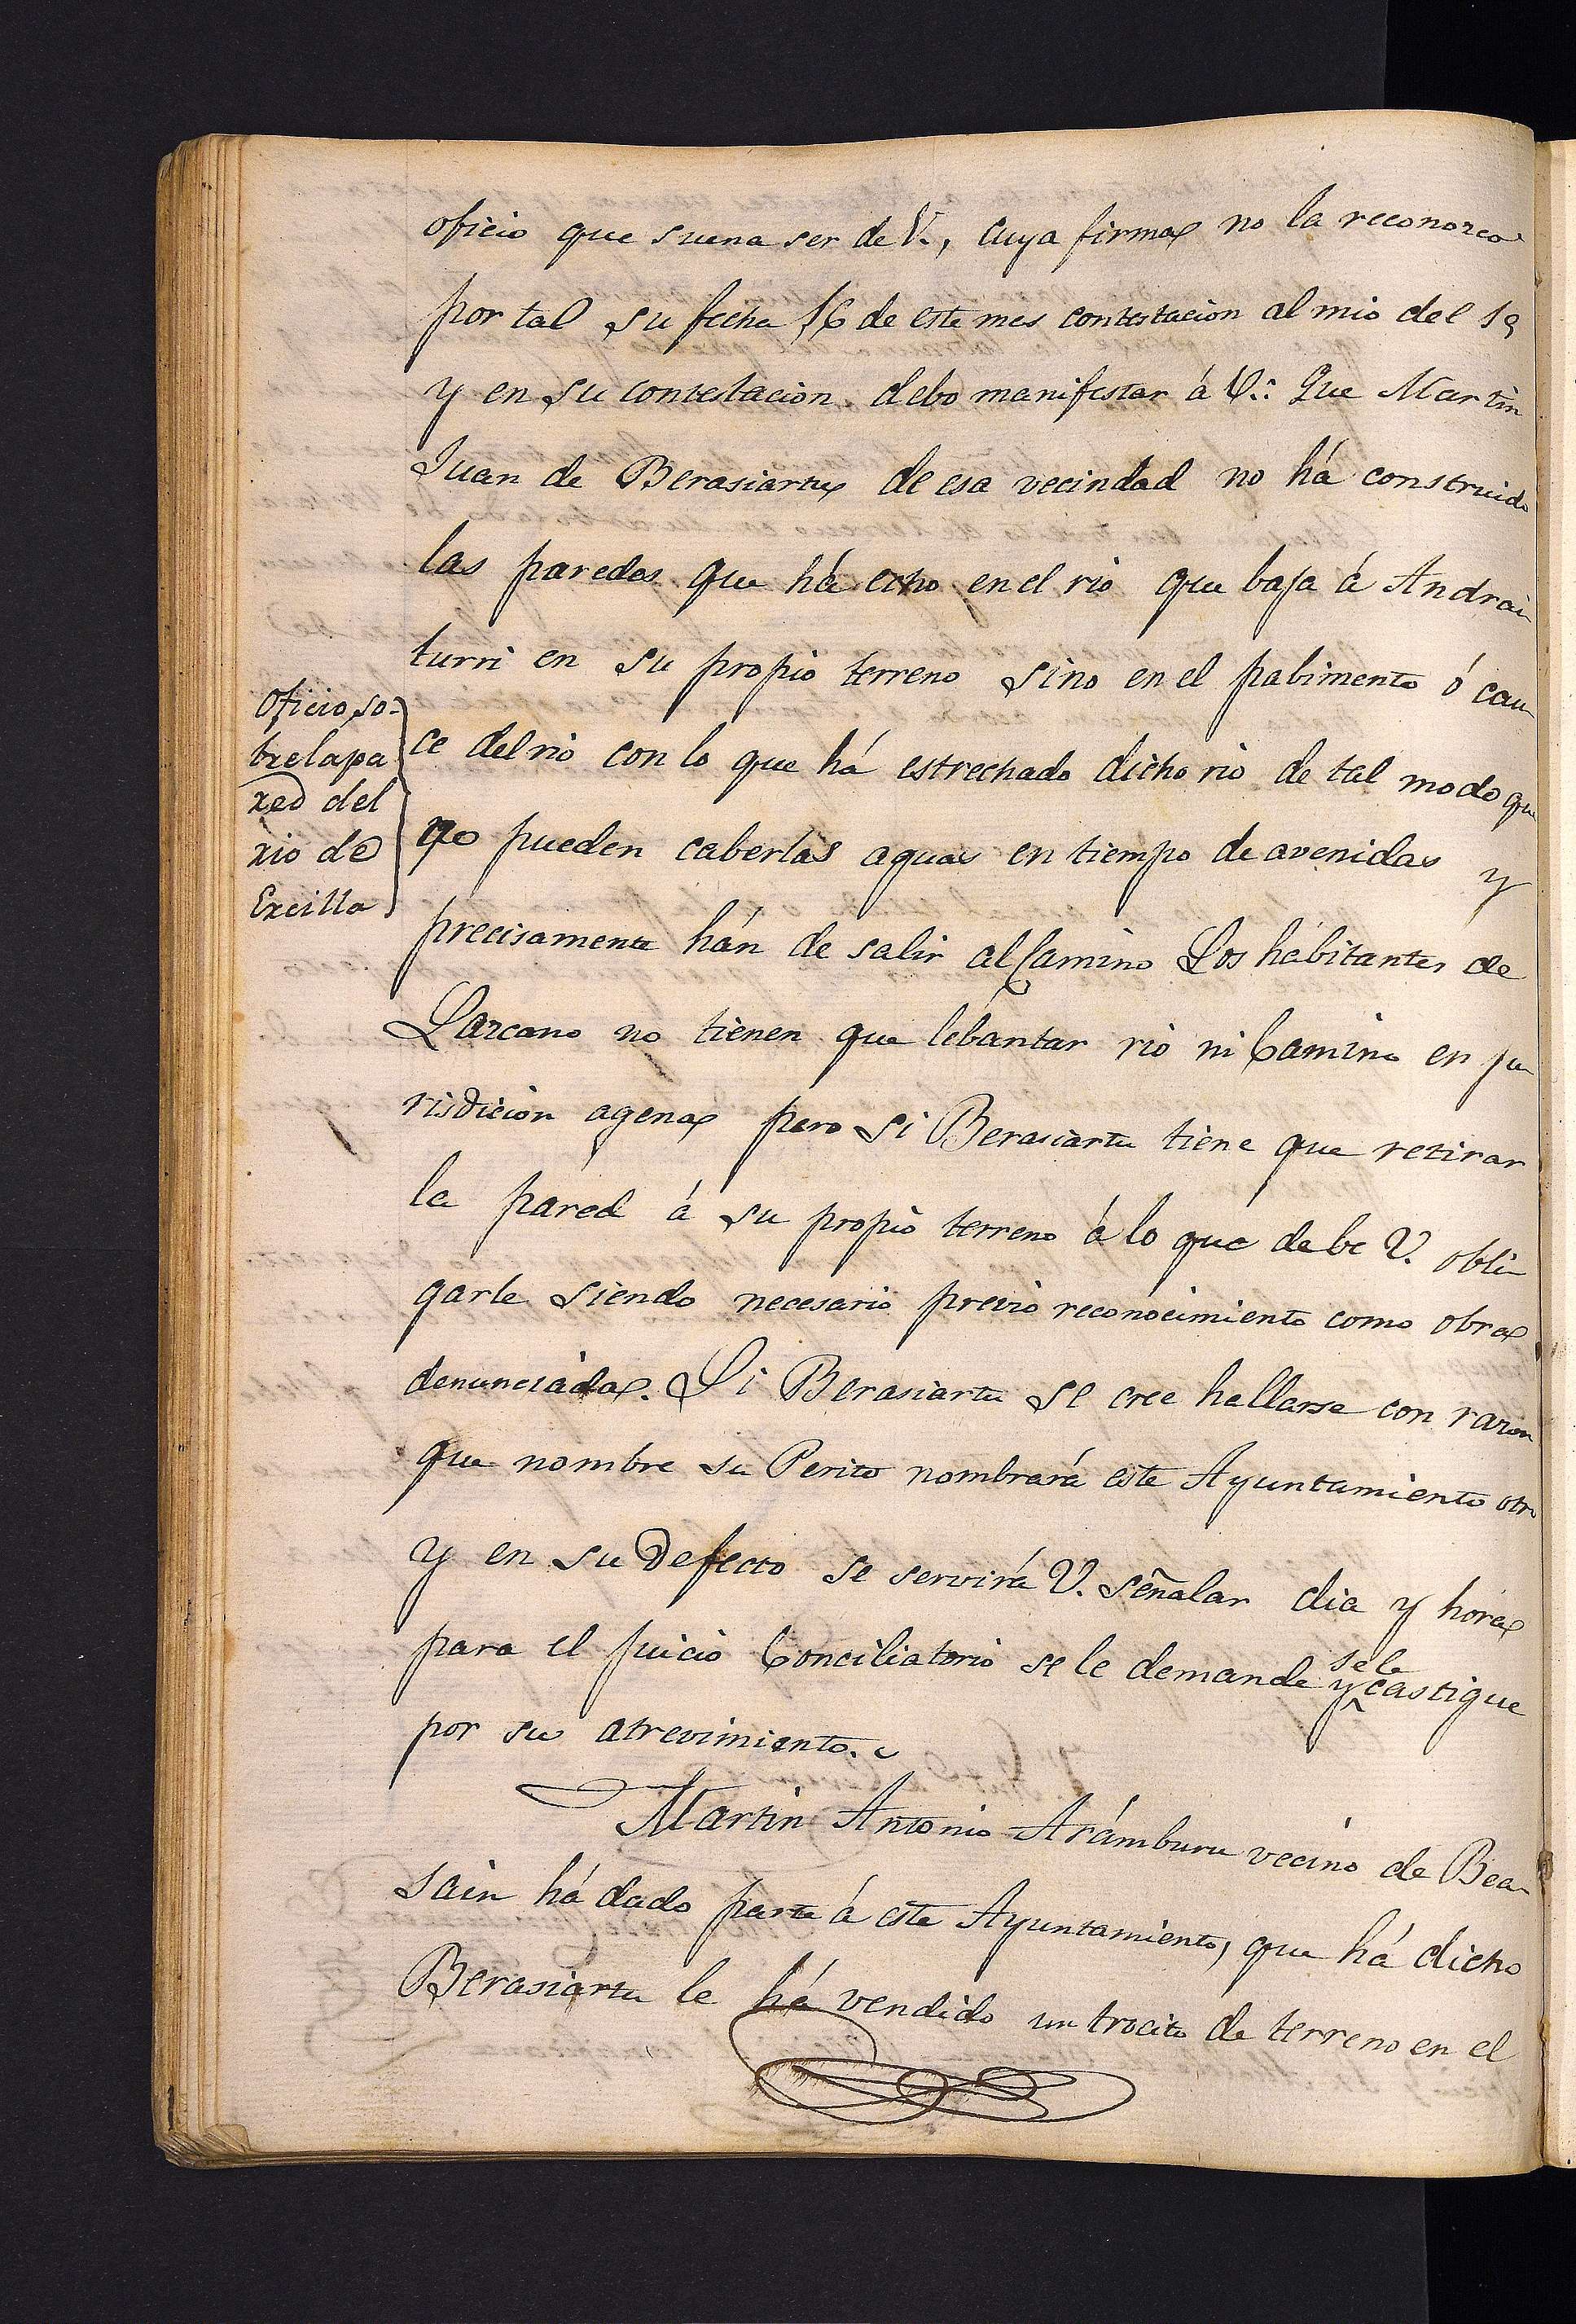 oficio que suena ser de V., cuya firma no la reconozco
por tal su fecha 16 de este mes contestacion al mio del 19
y en su contestacion debo manifestar á V.: Que Martin
Juan de Berasiartu de esa vecindad no há construido
las paredes que há echo en el rio que baja á Andrai-
turri en su propio terreno sino en el pabimento ó cau-
ce del rio con lo que há estrechado dicho rio de tal modo que
no pueden caberlas aguas en tiempo de avenidas y
precisamente hán de salir al Camino Los habitantes de
Lazcano no tienen que lebantar rio ni Camino en ju-
risdicion agena pero si Berasiartu tiene que retirar
la pared á su propio terreno á lo que debe V. obli-
garle siendo necesario previo reconocimiento como obra
denunciada. Si Berasiartu se cree hallarse con razon
que nombre su Perito nombrará este Ayuntamiento otro
y en su defecto se servirá V. señalar dia y hora
para el juicio Conciliatorio se le demande y se le castigue
por su atrevimiento.
Martin Antonio Arámburu vecino de Bea-
sain há dado parte á este Ayuntamiento, que há dicho
Berasiartu le há vendido un trocito de terreno en el
Oficio so-
bre la pa
red del
rio de
Ercilla